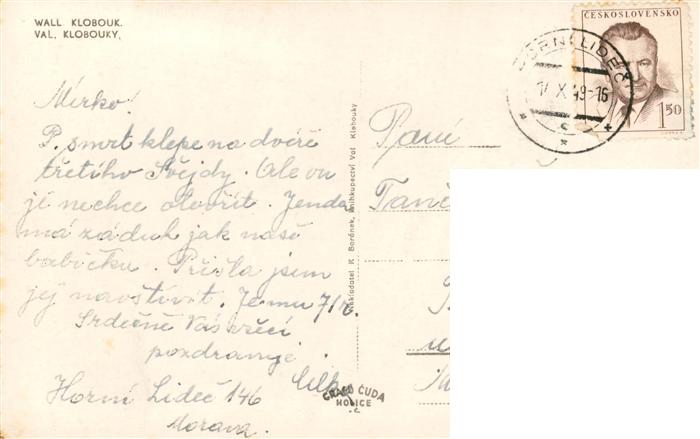 WALL. KLOBOUK.
VAL. KLOBOUKY.
ČESKOSLOVENSKO
1.50
HORNÍ LIDEČ
X 49-16
Mirko!
P. smrt klepe na dvéře
třetího Švejdy. Ale on
jí nechce otevřít. Jenda
má záduch jak naše
babička. Přišla jsem
jej navštívit. Je mu 71 r.
Srdečně Vás
pozdravuje
Milka
Horní Lideč 146
Morava.
Nakladatel K. Baránek, knihkupectví Val. Klobouky
GRAND ČUDA
HOLICE
Paní